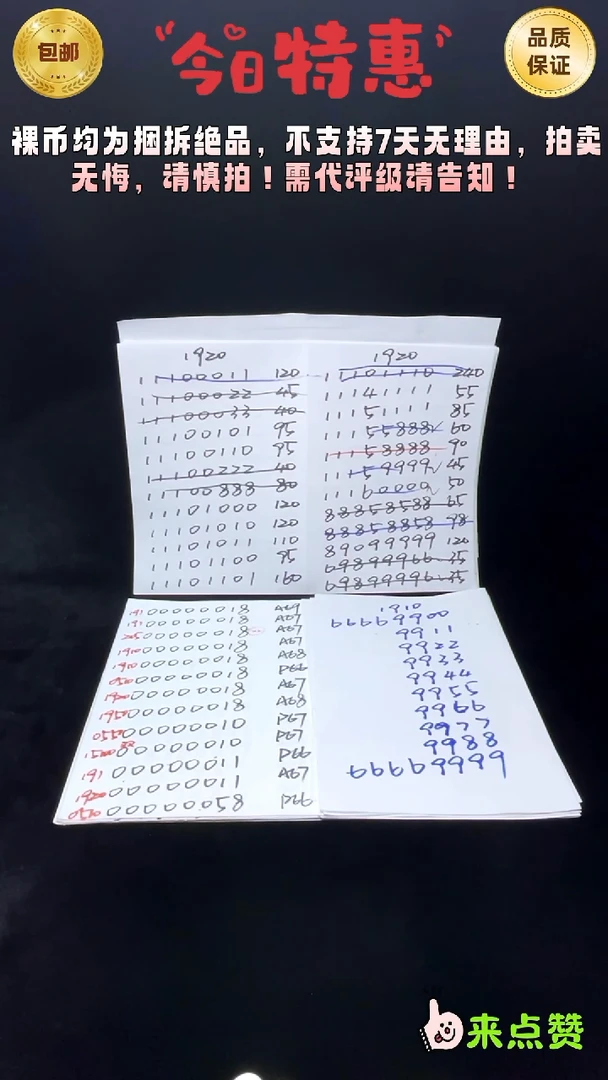 包邮
今日特惠
品质
保证
裸币均为捆拆绝品，不支持7天无理由，拍卖
无悔，请慎拍！需代评级请告知！
1920
11100011 120
11100022 45
11100033 40
11100101 95
11100110 95
11100222 40
11100888 80
11101000 120
11101010 120
11101011 110
11101100 95
11101101 160
1920
11101110 240
11141111 55
11151111 85
11155888 60
11158888 90
11159999 45
11160000 50
88858588 65
88858858 98
89099999 120
69899966 35
69899996 35
191 00000018 A69
191 00000018 A67
205 00000018 A67
1910 00000018 A67
1910 00000018 A68
0510 00000018 P66
1920 00000018 A67
1950 00000018 A68
0550 00000010 P67
00000010 P67
191 00000011 P66
1920 00000011 A67
0510 00000058 P66
1910
66669900
9911
9922
9933
9944
9955
9966
9977
9988
99999999
来点赞